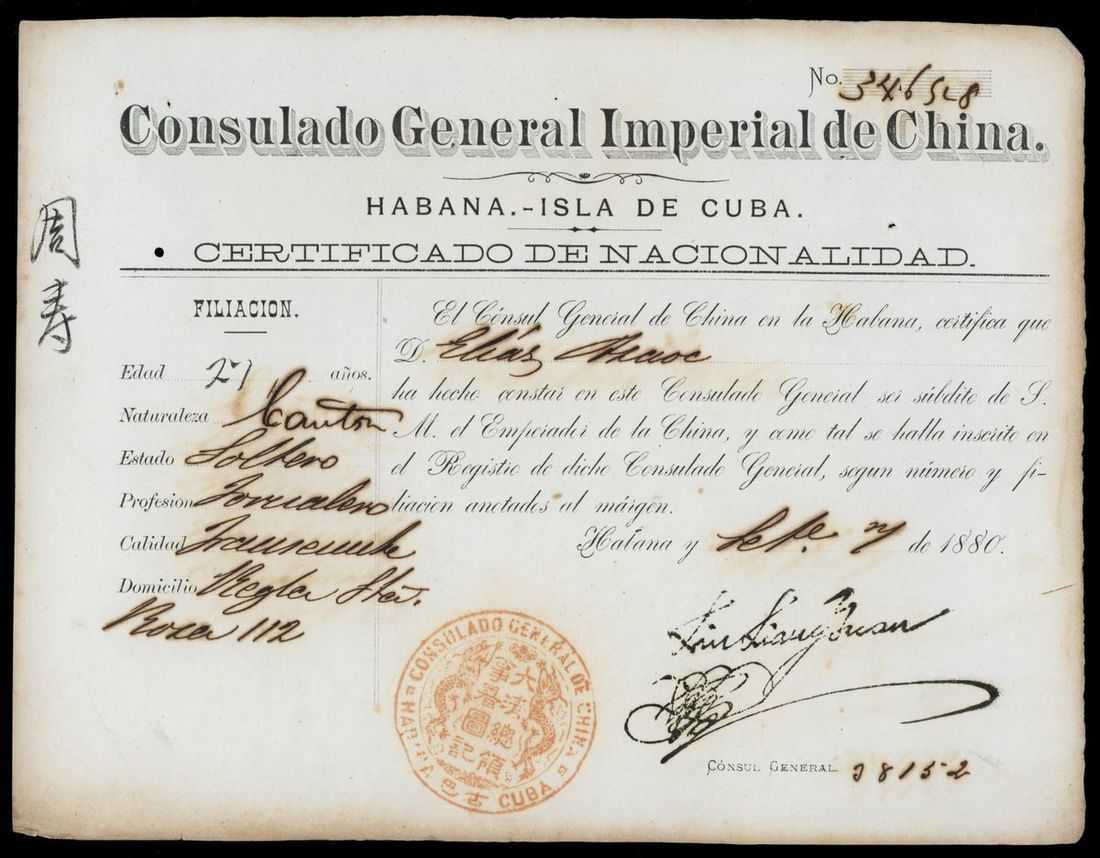 No. 34658
Consulado General Imperial de China.
HABANA.-ISLA DE CUBA.
CERTIFICADO DE NACIONALIDAD.
周寿
FILIACION.
Edad 27 años.
Naturaleza Canton
Estado Soltero
Profesion Jornalero
Calidad Transeunte
Domicilio Regla Sta.
Rosa 112
El Cónsul General de China en la Habana, certifica que
D. Elias
ha hecho constar en este Consulado General ser súbdito de S.
M. el Emperador de la China, y como tal se halla inscrito en
el Registro de dicho Consulado General, segun número y fi-
liacion anotados al márgen.
Habana y Set.e 7 de 1880.
Liu Liang Yuan
CÓNSUL GENERAL. 28152
CONSULADO GENERAL DE CHINA
HABANA CUBA
大清總領
事官圖記
古巴